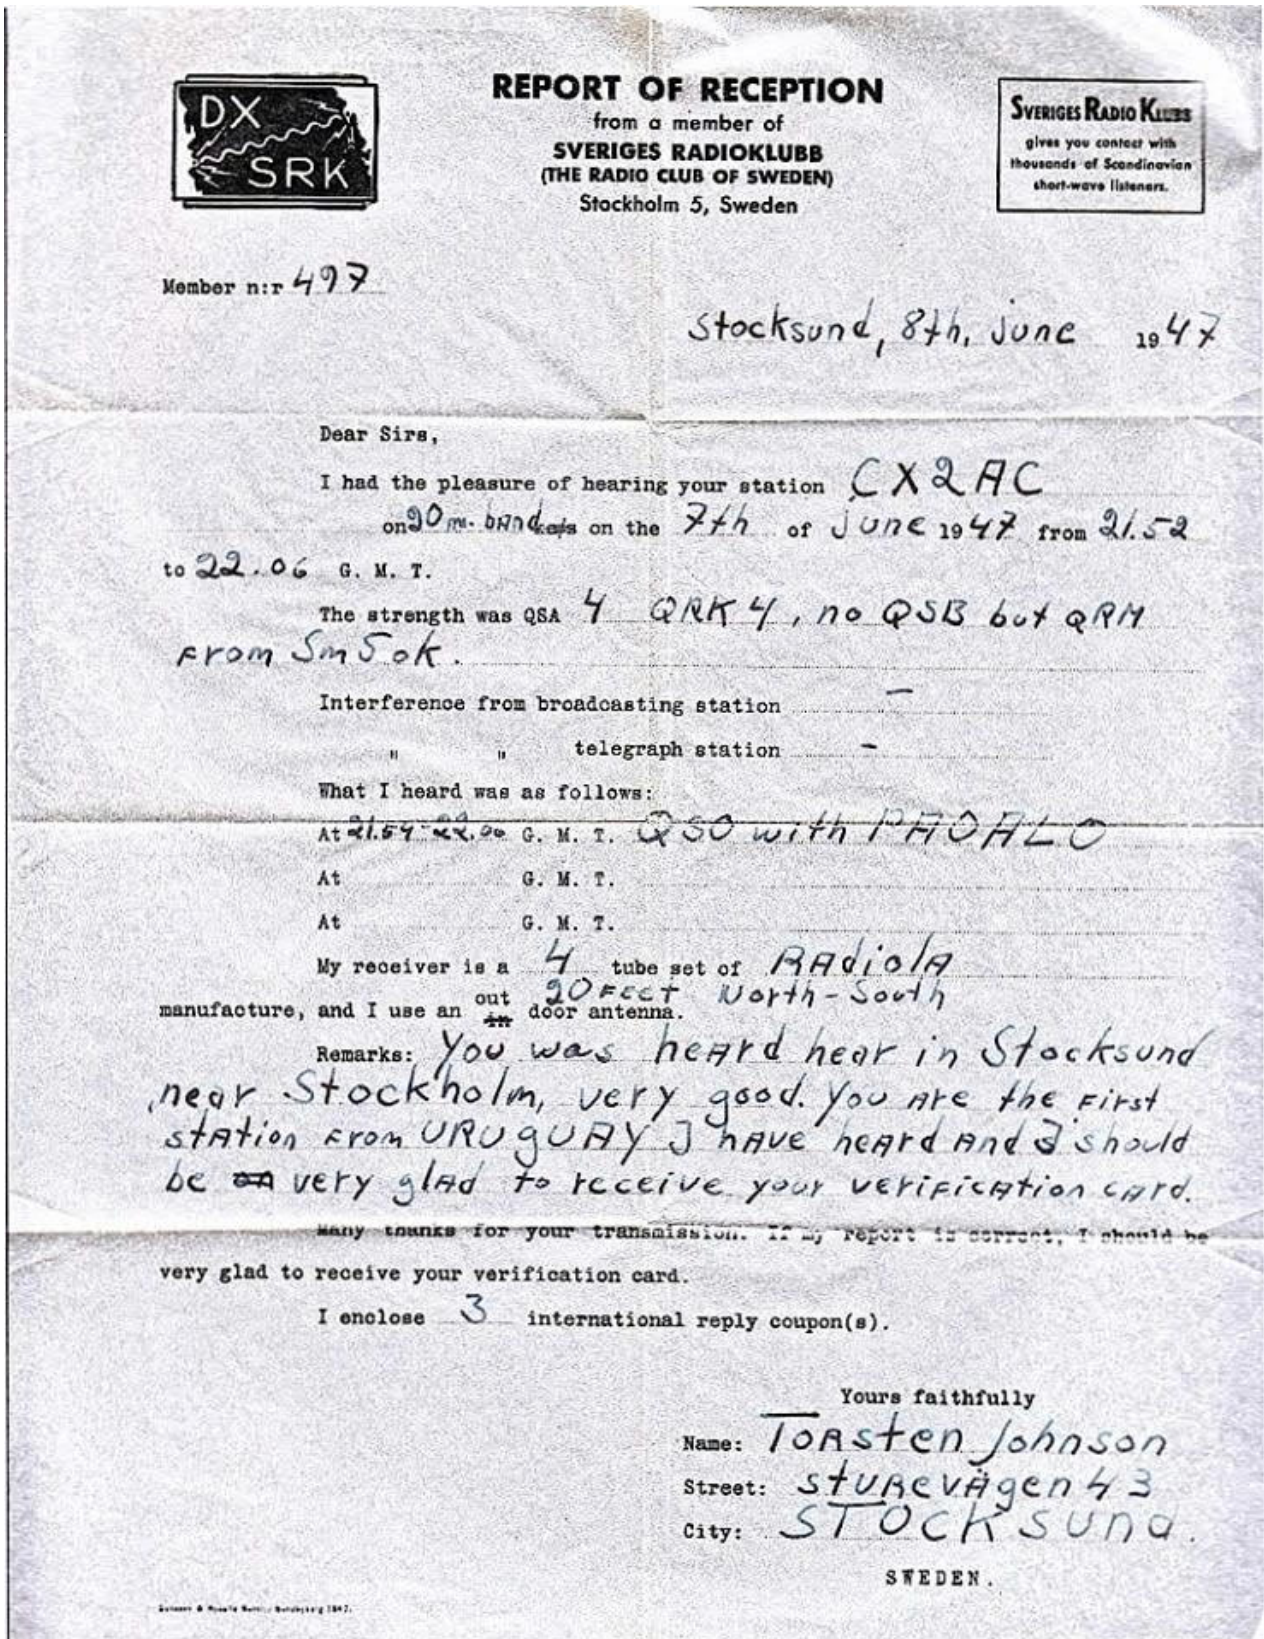 DX
SRK
REPORT OF RECEPTION
from a member of
SVERIGES RADIOKLUBB
(THE RADIO CLUB OF SWEDEN)
Stockholm 5, Sweden
SVERIGES RADIO KLUBB
gives you contact with
thousands of Scandinavian
short-wave listeners.
Member n:r 497
Stocksund, 8th, june 1947
Dear Sirs,
I had the pleasure of hearing your station CX2AC
on 20 m. band on the 7th of june 1947 from 21.52
to 22.06 G. M. T.
The strength was QSA 4 QRK 4, no QSB but QRM
From Sm5ok.
Interference from broadcasting station —
" " telegraph station -
What I heard was as follows:
At 21.54-22.00 G. M. T. QSO with PAOALO
At G. M. T.
At G. M. T.
My receiver is a 4 tube set of RAdiolA
out 20 FEET North-South
manufacture, and I use an in door antenna.
Remarks: You was heard hear in Stocksund
near Stockholm, very good. You Are the First
stAtion From URUgUAY J hAve heArd And J should
be very glAd to receive your veriFicAtion cArd.
Many thanks for your transmission. If my report is correct, I should be
very glad to receive your verification card.
I enclose 3 international reply coupon(s).
Yours faithfully
Name: TORsten Johnson
Street: stURevägen 43
City: STOCKSUnd.
SWEDEN.